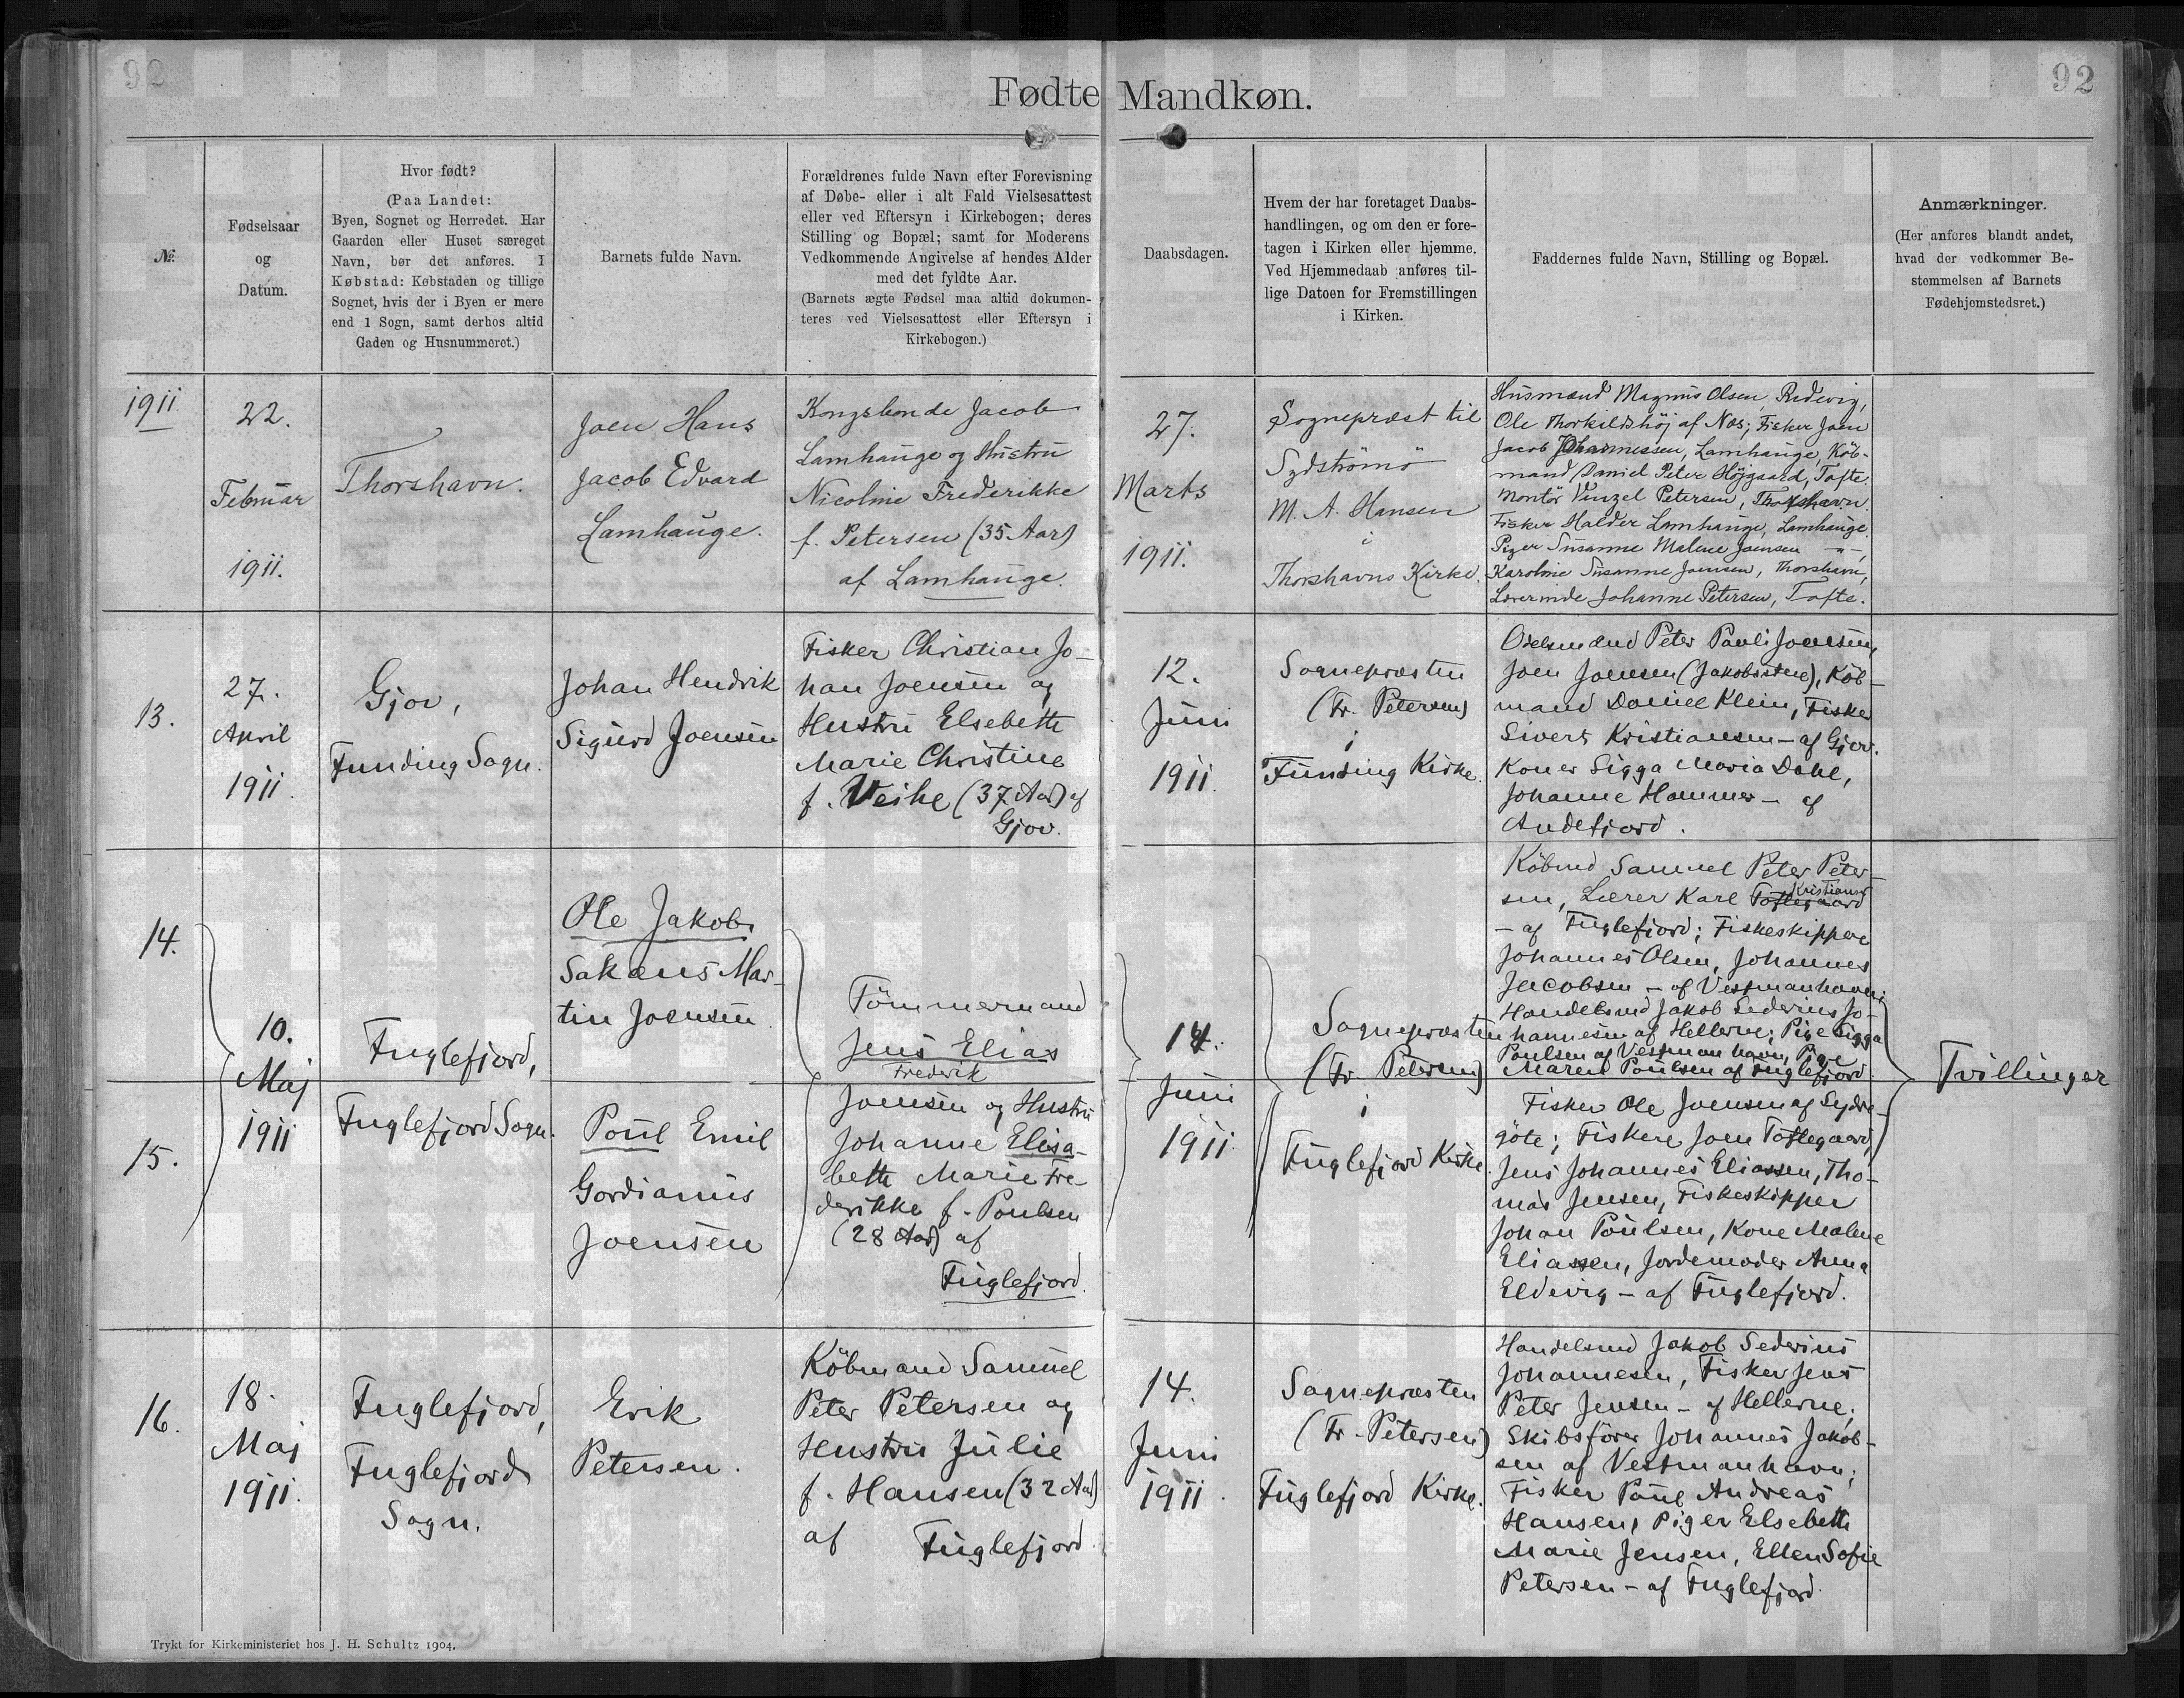 92
92
Fødte Mandkøn.
№.
Fødselsaar
og
Datum.
Hvor født?
(Paa Landet:
Byen, Sognet og Herredet. Har
Gaarden eller Huset særeget
Navn, bør det anføres. I
Købstad: Købstaden og tillige
Sognet, hvis der i Byen er mere
end 1 Sogn, samt derhos altid
Gaden og Husnummeret.)
Barnets fulde Navn.
Forældrenes fulde Navn efter Forevisning
af Døbe- eller i alt Fald Vielsesattest
eller ved Eftersyn i Kirkebogen; deres
Stilling og Bopæl; samt for Moderens
Vedkommende Angivelse af hendes Alder
med det fyldte Aar.
(Barnets ægte Fødsel maa altid dokumen-
teres ved Vielsesattest eller Eftersyn i
Kirkebogen.)
Daabsdagen.
Hvem der har foretaget Daabs-
handlingen, og om den er fore-
tagen i Kirken eller hjemme.
Ved Hjemmedaab anføres til-
lige Datoen for Fremstillingen
i Kirken.
Faddernes fulde Navn, Stilling og Bopæl.
Anmærkninger.
(Her anføres blandt andet,
hvad der vedkommer Be-
stemmelsen af Barnets
Fødehjemstedsret.)
1911
22.
Februar
1911.
Thorshavn.
Joen Hans
Jacob Edvard
Lamhauge.
Kongsbonde Jacob
Lamhauge og Hustru
Nicoline Frederikke
f. Petersen (35 Aar)
af Lamhauge.
27.
Marts
1911.
Sognepræst til
Sydströmö
M. A. Hansen
i
Thorshavns Kirke.
Husmænd Magnus Olsen, Redevig,
Ole Thorkildshöj af Næs; Fisker Joen
Jacob Johannessen, Lamhauge, Köb-
mand Daniel Peter Höjgaard, Tofte.
Montör Vinzel Petersen, Thorshavn.
Fisker Halder Lamhauge, Lamhauge.
Piger Susanne Malene Joensen -"-,
Karoline Susanne Joensen, Thorshavn,
Lærerinde Johanne Petersen, Tofte.
13.
27.
April
1911.
Gjov,
Funding Sogn.
Johan Hendrik
Sigurd Joensen
Fisker Christian Jo-
han Joensen og
Hustru Elsebeth
Marie Christine
f. Veihe (37 Aar) af
Gjov.
12.
Juni
1911.
Sognepræsten
(Fr. Petersen)
i
Funding Kirke.
Odelsmænd Peter Pauli Joensen,
Joen Joensen (Jakobsstue), Köb-
mand Daniel Klein, Fisker
Sivert Kristiansen - af Gjov.
Koner Sigga Maria Dahl,
Johanne Hammer - af
Andefjord.
14.
10.
Maj
1911
Fuglefjord,
Fuglefjord Sogn.
Ole Jakob
Sakæus Mar-
tin Joensen.
Tömmermand
Jens Elias
Frederik
Joensen og Hustru
Johanne Elisa-
beth Marie Fre-
derikke f. Poulsen
(28 Aar) af
Fuglefjord.
14.
Juni
1911.
Sognepræsten
(Fr. Petersen)
i
Fuglefjord Kirke.
Köbmd Samuel Peter Peter-
sen, Lærer Karl Toftegaard Kristiansen
- af Fuglefjord; Fiskeskippere
Johannes Olsen, Johannes
Jacobsen - af Vestmanhavn;
Handelsmd Jakob Sederius Jo-
hannesen af Hellerne; Pige Sigga
Poulsen af Vestmanhavn, Pige
Maren Poulsen af Fuglefjord.
Tvillinger
15.
Poul Emil
Gordianus
Joensen
Fisker Ole Joensen af Sydre-
göte; Fiskere Joen Toftegaard,
Jens Johannes Eliassen, Tho-
mas Jensen, Fiskeskipper
Johan Poulsen, Kone Malene
Eliassen, Jordemoder Anna
Eldevig - af Fuglefjord.
16.
18.
Maj
1911.
Fuglefjord,
Fuglefjord
Sogn.
Erik
Petersen.
Köbmand Samuel
Peter Petersen og
Hustru Julie
f. Hansen (32 Aar)
af Fuglefjord.
14.
Juni
1911.
Sognepræsten
(Fr. Petersen)
Fuglefjord Kirke.
Handelsmd Jakob Sederius
Johannesen, Fisker Jens
Peter Jensen - af Hellerne;
Skibsförer Johannes Jakob-
sen af Vestmanhavn;
Fisker Poul Andreas
Hansen, Piger Elsebeth
Marie Jensen, Ellen Sofie
Petersen - af Fuglefjord.
Trykt for Kirkeministeriet hos J. H. Schultz 1904.